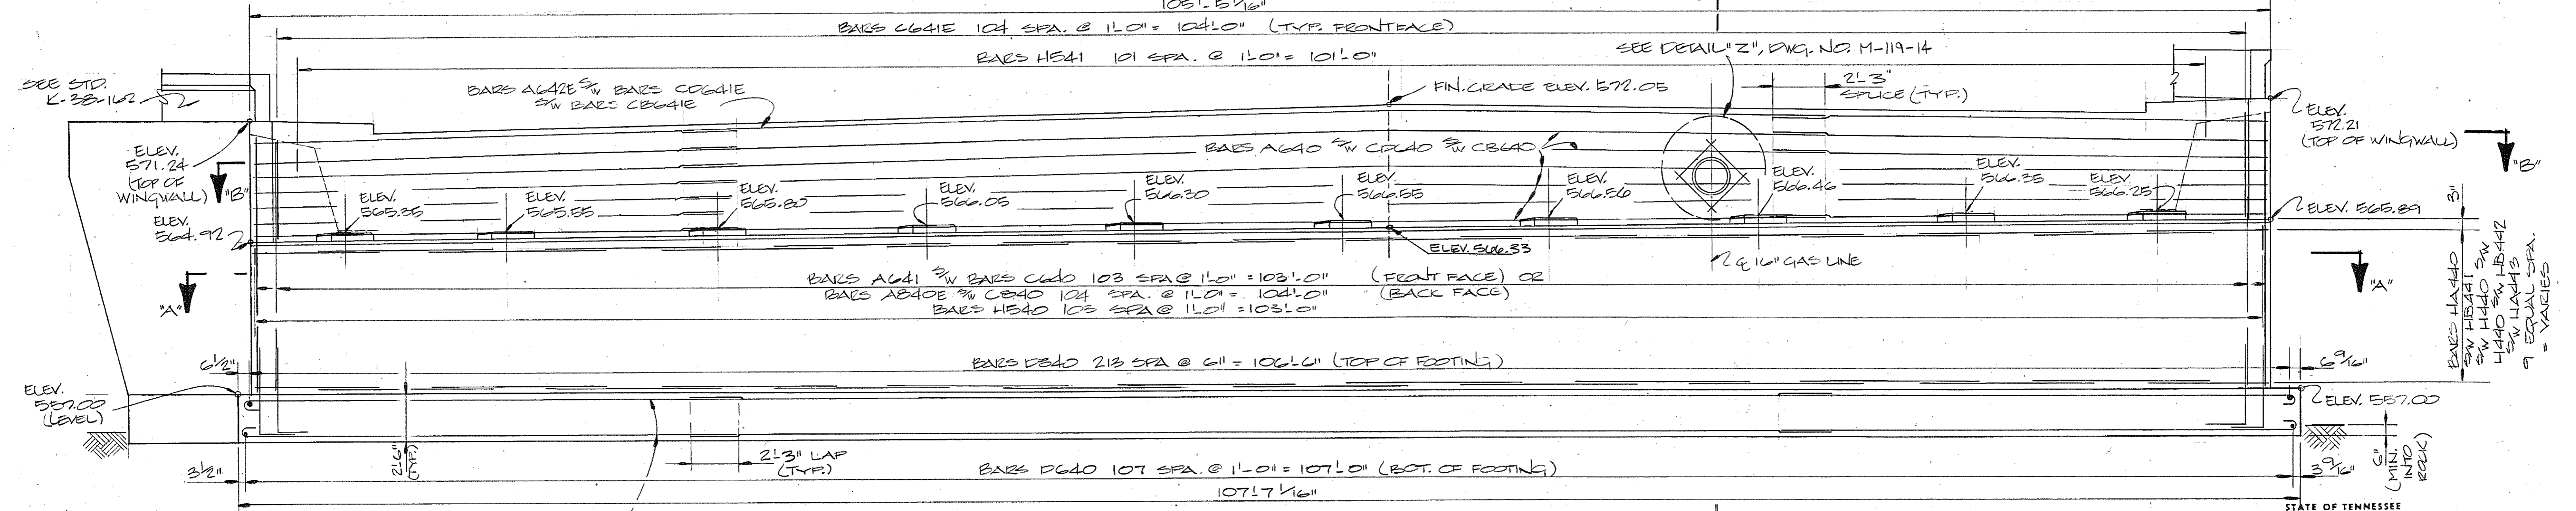 105'-5 1/16"
BARS C641E 104 SPA. @ 1'-0" = 104'-0" (TYP. FRONT FACE)
BARS H541 101 SPA. @ 1'-0" = 101'-0"
SEE DETAIL "Z", DWG. NO. M-119-14
SEE STD.
K-38-162
BARS A642E S/W BARS CD641E
S/W BARS CB641E
FIN. GRADE ELEV. 572.05
2'-3"
SPLICE (TYP.)
ELEV.
572.21
(TOP OF WINGWALL)
ELEV.
571.24
(TOP OF
WINGWALL)
"B"
"B"
BARS A640 S/W CD640 S/W CB640
ELEV.
565.35
ELEV.
565.55
ELEV.
565.80
ELEV.
566.05
ELEV.
566.30
ELEV.
566.55
ELEV.
566.56
ELEV.
566.46
ELEV.
566.35
ELEV.
566.25
ELEV.
564.92
ELEV. 565.89
3"
ELEV. 566.33
℄ 16" GAS LINE
"A"
"A"
BARS A641 S/W BARS C640 103 SPA @ 1'-0" = 103'-0" (FRONT FACE) OR
BARS A840E S/W C840 104 SPA. @ 1'-0" = 104'-0" (BACK FACE)
BARS H540 103 SPA @ 1'-0" = 103'-0"
BARS HA440
S/W HB441
S/W H440 S/W
H440 S/W HB442
S/W HA443
9 EQUAL SPA.
= VARIES
6 1/2"
BARS D840 213 SPA @ 6" = 106'-6" (TOP OF FOOTING)
6 9/16"
ELEV.
557.00
(LEVEL)
ELEV. 557.00
2'-6"
(TYP.)
2'-3" LAP
(TYP.)
6"
(MIN.
INTO
ROCK)
3 1/2"
BARS D640 107 SPA. @ 1'-0" = 107'-0" (BOT. OF FOOTING)
3 9/16"
107'-7 1/16"
STATE OF TENNESSEE